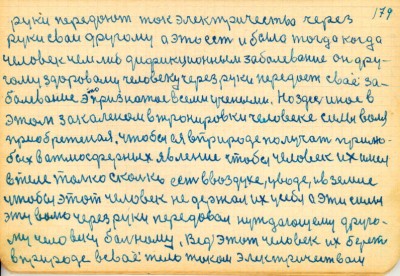 179
руки передоют ток электричества через
руки сваи другому а это ест и была тогда когда
человек чем либ дификционым заболевание он дру-
гому здоровому человеку через руки передает сваё за-
болевание это признатое всеми учеными. Но здес иное в
этом закаленом в тронировки человеке силы воли
приобретеная, чтобы ся в природе получат при любых
в атмосферных явление чтобы человек их имел
в теле толко сколько ест в воздухе, у воде, и в земле
чтобы этот человек не держал их у себя а эти силы
эту волю через руки передовал нуждающему друго-
му человику болному. Вед этот человек их берет
в природе в сваё тело током электричествам